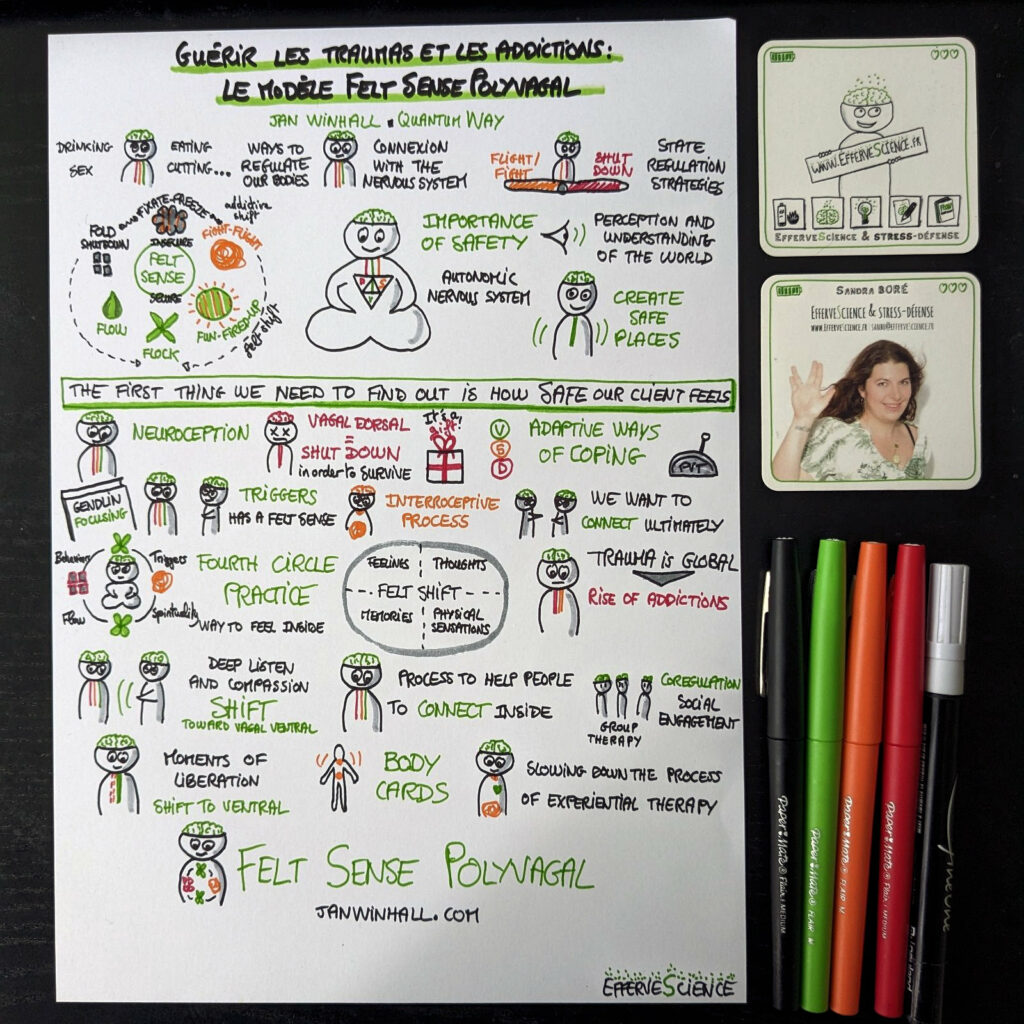 GUÉRIR LES TRAUMAS ET LES ADDICTIONS:
LE MODÈLE FELT SENSE POLYVAGAL
JAN WINHALL . QUANTUM WAY
DRINKING
SEX
EATING
CUTTING...
WAYS TO
REGULATE
OUR BODIES
CONNEXION
WITH THE
NERVOUS SYSTEM
FLIGHT/
FIGHT
SHUT
DOWN
STATE
REGULATION
STRATEGIES
FIXATE-FREEZE
addictive
shift
FOLD
SHUTDOWN
INSECURE
FIGHT-FLIGHT
FELT
SENSE
SECURE
FLOW
FLOCK
FUN-FIRED-UP
felt shift
IMPORTANCE
OF SAFETY
PERCEPTION AND
UNDERSTANDING
OF THE WORLD
P S
V
AUTONOMIC
NERVOUS SYSTEM
CREATE
SAFE
PLACES
THE FIRST THING WE NEED TO FIND OUT IS HOW SAFE OUR CLIENT FEELS
NEUROCEPTION
VAGAL DORSAL
=
SHUT DOWN
in order to SURVIVE
It's a
V
S
D
ADAPTIVE WAYS
OF COPING
PVT
GENDLIN
FOCUSING
TRIGGERS
HAS A FELT SENSE
INTERROCEPTIVE
PROCESS
WE WANT TO
CONNECT ULTIMATELY
Behaviors
Triggers
Flow
Spirituality
FOURTH CIRCLE
PRACTICE
WAY TO FEEL INSIDE
FEELINGS
THOUGHTS
FELT SHIFT
MEMORIES
PHYSICAL
SENSATIONS
TRAUMA is GLOBAL
RISE OF ADDICTIONS
DEEP LISTEN
AND COMPASSION
SHIFT
TOWARD VAGAL VENTRAL
PROCESS TO HELP PEOPLE
TO CONNECT INSIDE
GROUP
THERAPY
COREGULATION
SOCIAL
ENGAGEMENT
MOMENTS OF
LIBERATION
SHIFT TO VENTRAL
BODY
CARDS
SLOWING DOWN THE PROCESS
OF EXPERIENTIAL THERAPY
FELT SENSE POLYVAGAL
JANWINHALL.COM
EFFERVESCIENCE
WWW.EFFERVESCIENCE.FR
EFFERVESCIENCE & STRESS-DÉFENSE
SANDRA BORÉ
EFFERVESCIENCE & STRESS-DÉFENSE
WWW.EFFERVESCIENCE.FR SANDRA@EFFERVESCIENCE.FR
PAPER MATE FLAIR MEDIUM
PAPER MATE FLAIR M
PAPER MATE FLAIR M
PAPER MATE FLAIR MEDIUM